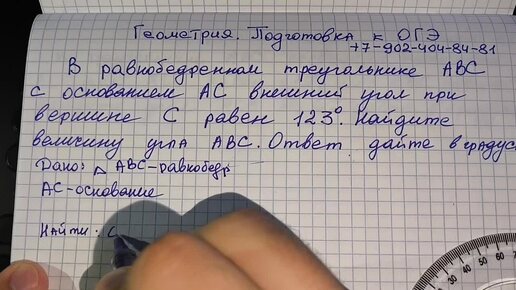 Геометрия. Подготовка к ОГЭ
+7-902-404-84-81
В равнобедренном треугольнике ABC
с основанием AC внешний угол при
вершине C равен 123°. Найдите
величину угла ABC. Ответ дайте в градус
Дано: △ ABC-равнобедр
AC-основание
Найти: C